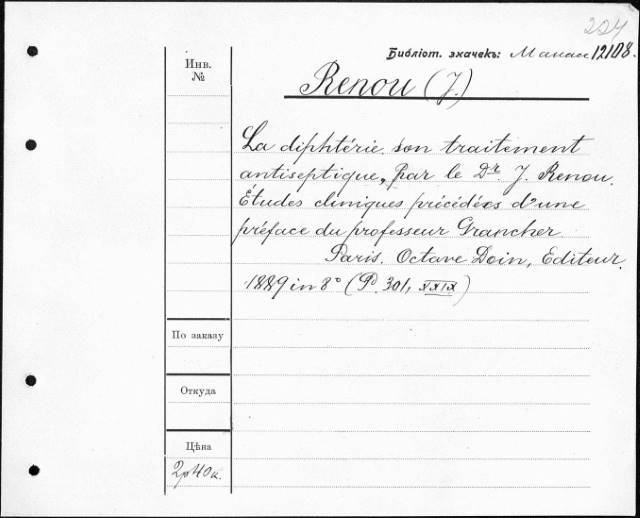 224
Библіот. зкачекъ: Манас 12108.
Инв. №
Renou (J.)
La diphtérie son traitement
antiseptique, par le Dr. J. Renou.
Études cliniques précédées d'une
préface du professeur Grancher
Paris. Octave Doin, Editeur.
1889 in 8° (Pd. 301, XXIX)
По заказу
Откуда
Цѣна
2р40к.